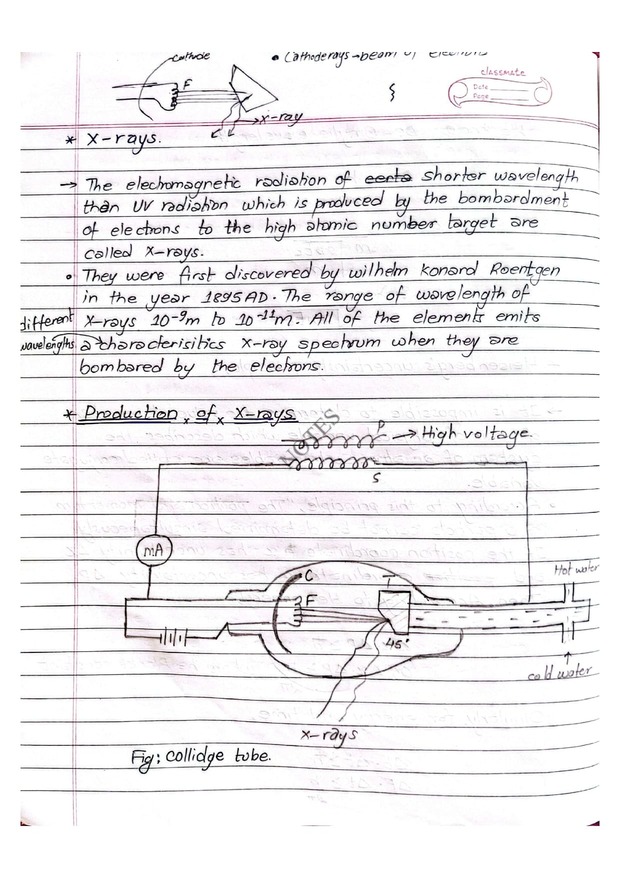 cathode
• Cathoderays→beam of electrons
classmate
Date
Page
F
x-ray
* X-rays.
→ The elechomagnetic radiation of shorter wavelength
than UV radiation which is produced by the bombardment
of electrons to the high atomic number target are
called X-rays.
• They were first discovered by wilhelm konard Roentgen
in the year 1895AD. The range of wavelength of
different X-rays 10⁻⁹m to 10⁻¹¹m. All of the elements emits
wavelengths a characterisitics x-ray spectrum when they are
bombared by the electrons.
* Production of X-rays
NOTES
P → High voltage.
S
mA
Hot water
C
T
F
45°
cold water
x-rays
Fig: collidge tube.